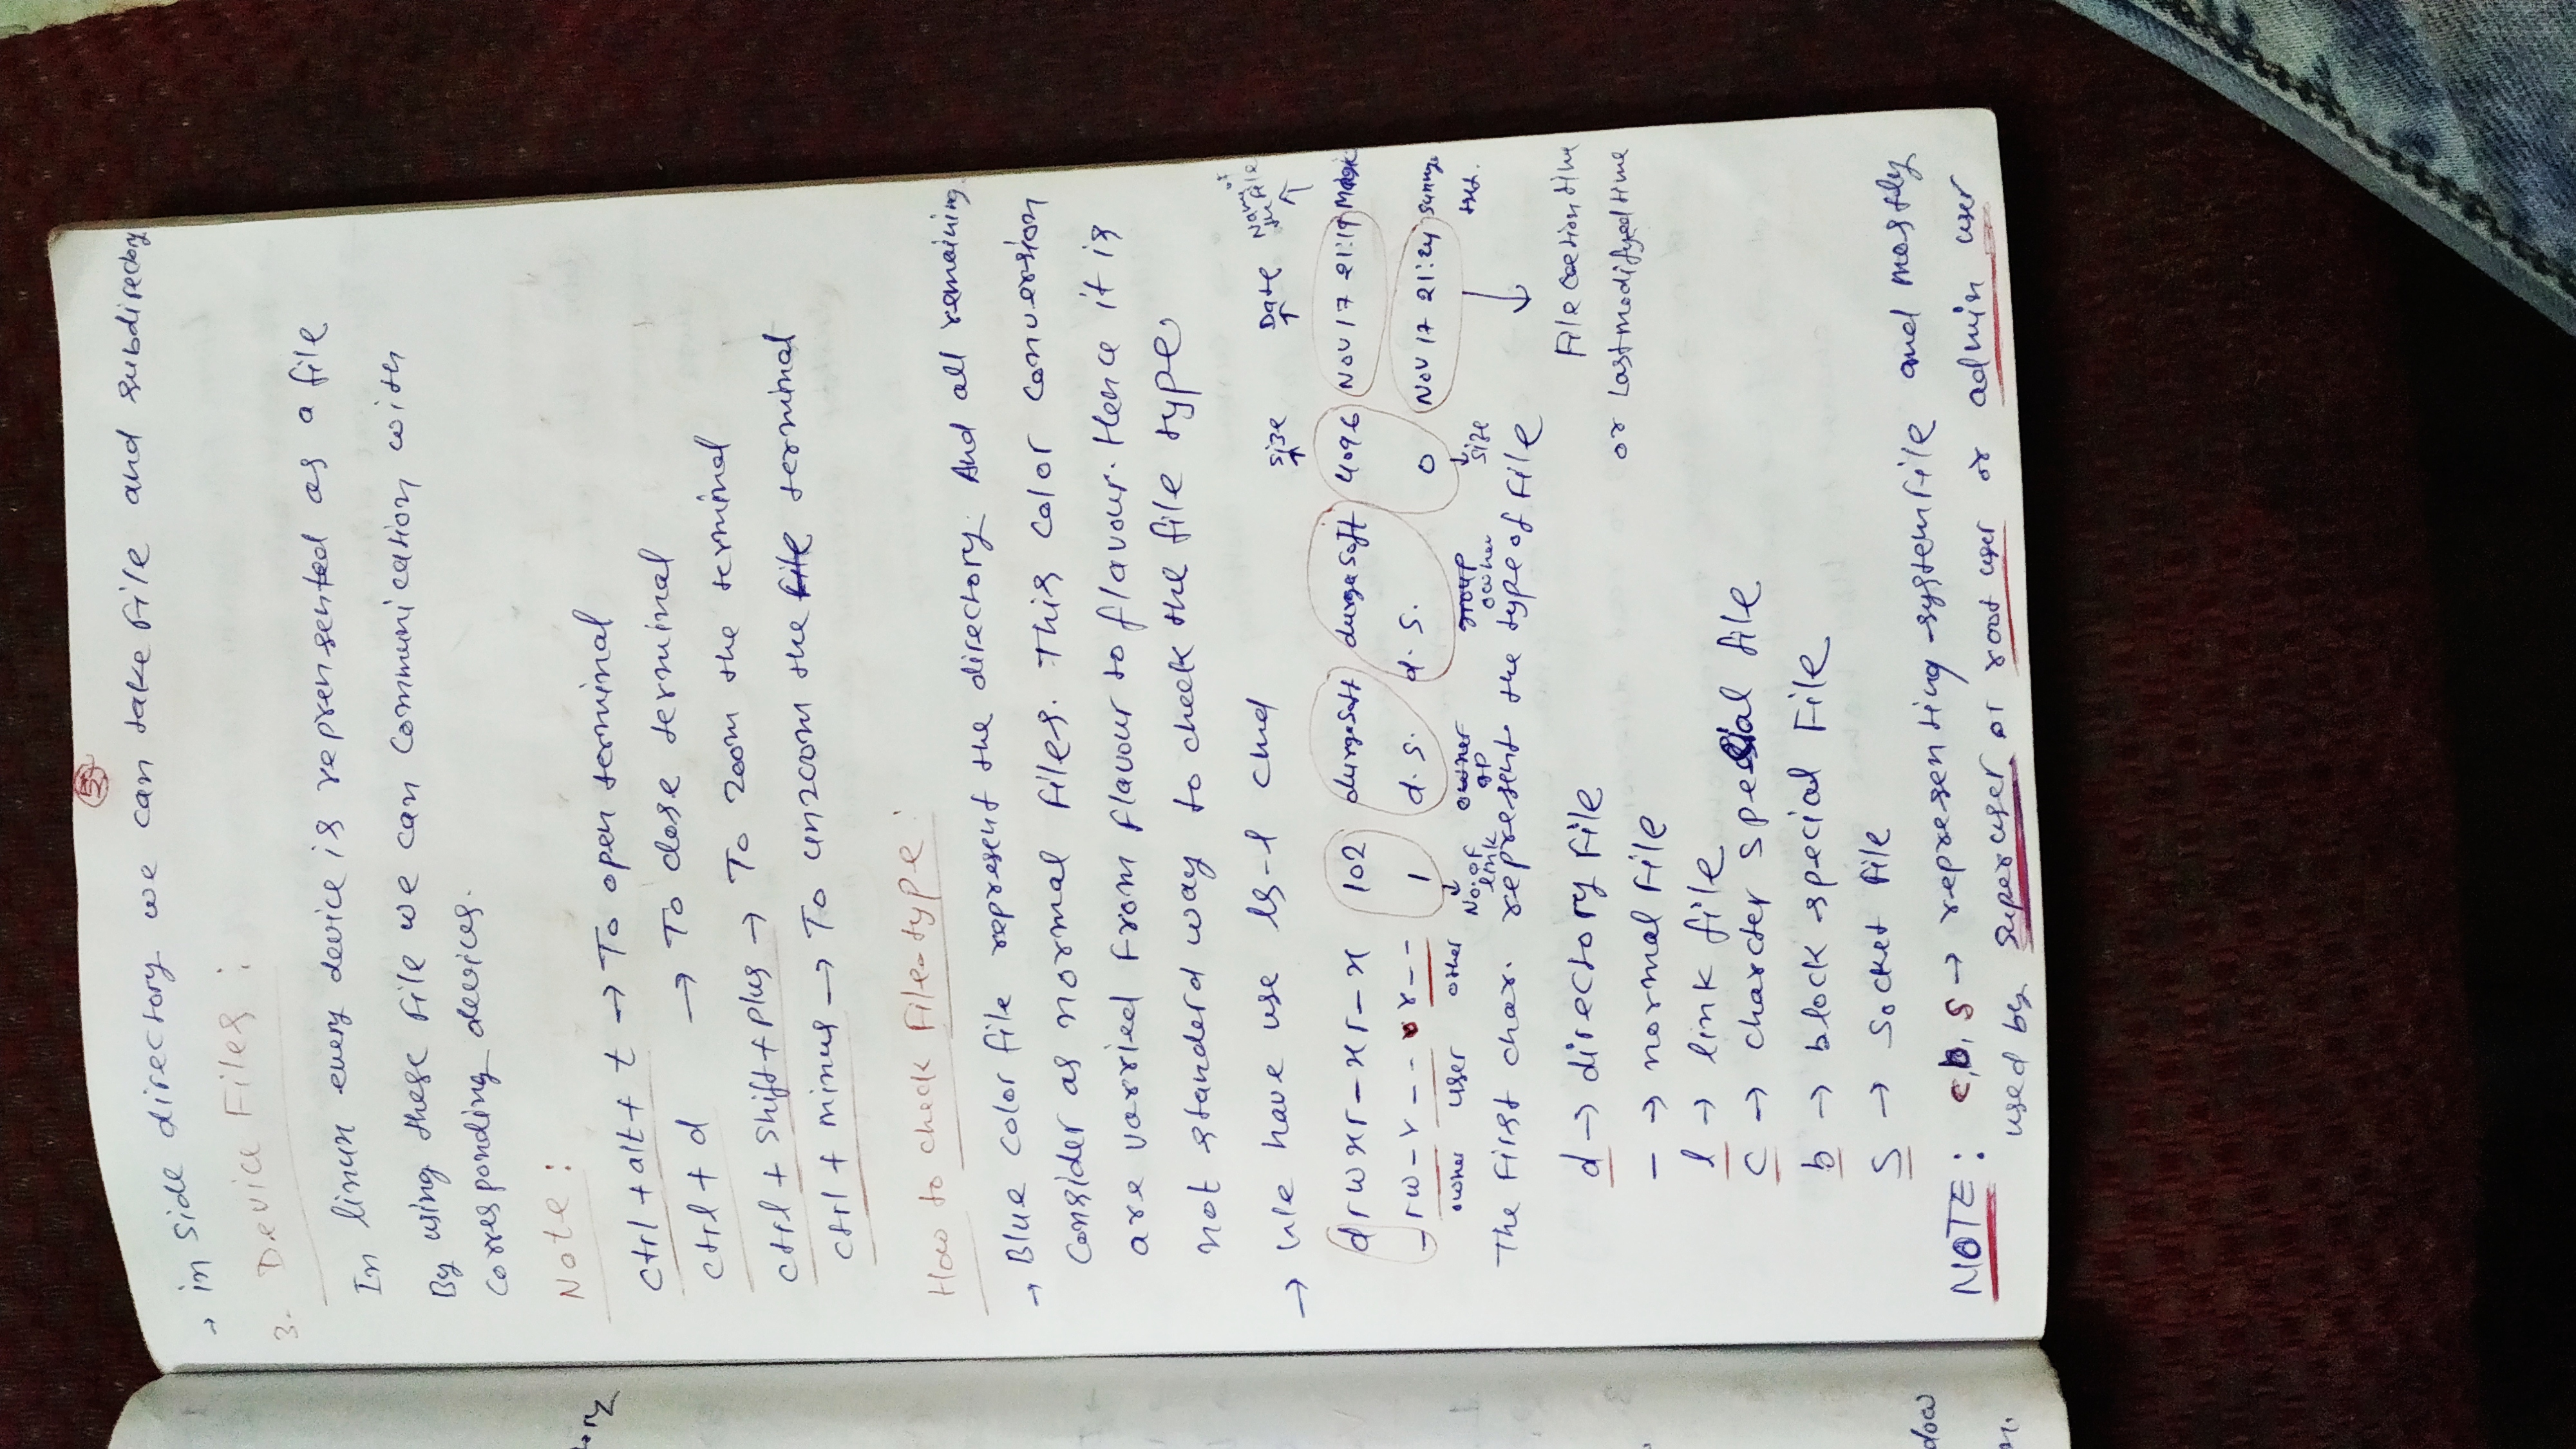 5
→ in side directory we can take file and subdirectory
3. Device Files :
In linux every device is reprensented as a file
By using these file we can communication with
corresponding devices.
Note :
ctrl + alt + t → To open terminal
ctrl + d → To close terminal
ctrl + shift + plus → To zoom the terminal
ctrl + minus → To unzoom the file terminal
How to check file type :
→ Blue color file represent the directory. And all remaining
consider as normal files. This color conversion
are varried from flavour to flavour. Hence it is
not standerd way to check the file type.
→ We have use ls -l cmd
size Date Name of the file
drwxr-xr-x 102 durgasoft durgasoft 4096 Nov 17 21:19
-rw-r-- r-- 1 d.s. d.s. 0 Nov 17 21:24
owner user other No. of link owner gp group owner size
The first char. represent the type of file
d → directory file
File time
or Last modifyed time
- → normal file
l → link file
c → charcter special file
b → block special file
s → socket file
NOTE : c, b, s → representing system file and mostly
used by super user or root user or admin user
tory
dow
n.